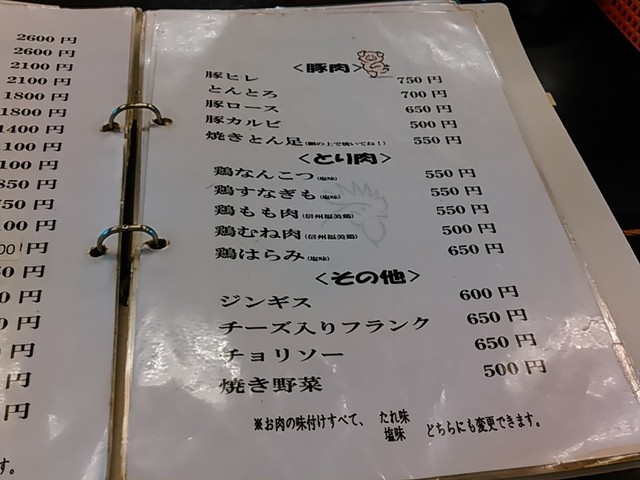 2600円
2600円
2100円
2100円
1800円
1800円
1400円
1100円
100円
850円
750円
100円
00円
50円
0円
0円
円
円
円
す。
<豚肉>
豚ヒレ 750円
とんとろ 700円
豚ロース 650円
豚カルビ 500円
焼きとん足(網の上で焼いてね!) 550円
<とり肉>
鶏なんこつ(塩味) 550円
鶏すなぎも(塩味) 550円
鶏もも肉(信州福美鶏) 550円
鶏むね肉(信州福美鶏) 500円
鶏はらみ(塩味) 650円
<その他>
ジンギス 600円
チーズ入りフランク 650円
チョリソー 650円
焼き野菜 500円
※お肉の味付けすべて、 たれ味 塩味 どちらにも変更できます。